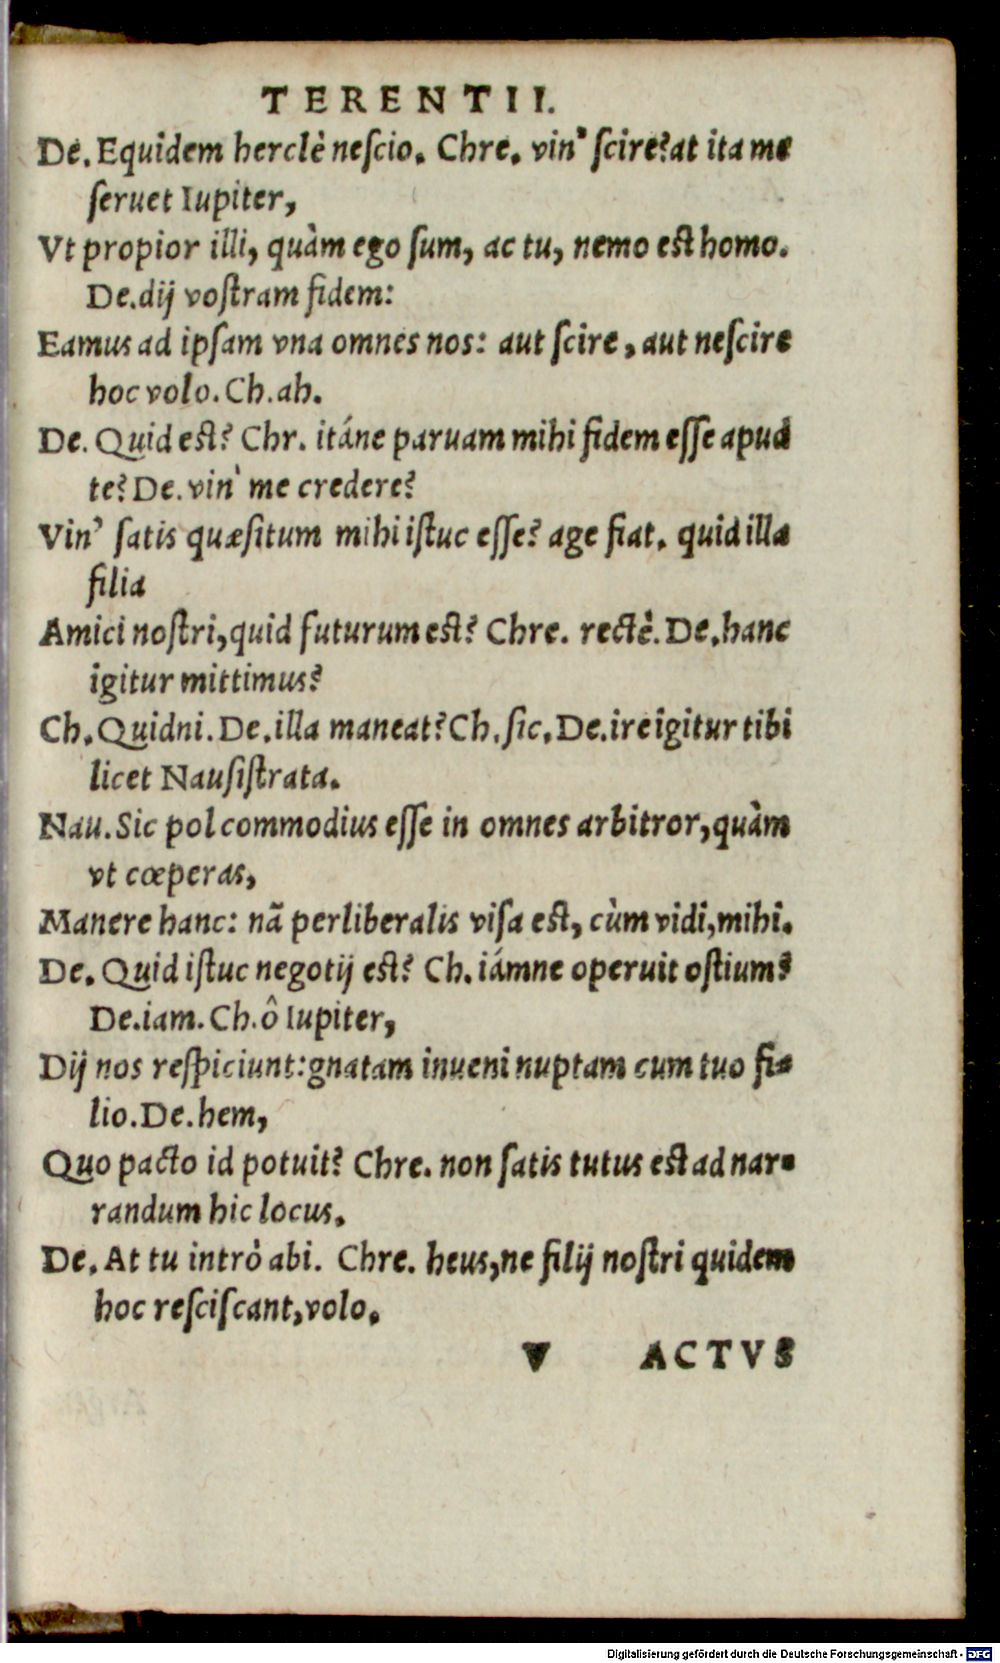 TERENTII.
De. Equidem herclè neſcio. Chre. vin' ſcire? at ita me
ſeruet Iupiter,
Vt propior illi, quàm ego ſum, ac tu, nemo est homo.
De. dij voſtram fidem:
Eamus ad ipſam vna omnes nos: aut ſcire, aut neſcire
hoc volo. Ch. ah.
De. Quid est? Chr. itáne paruam mihi fidem eſſe apud
te? De. vin' me credere?
Vin' ſatis quæſitum mihi iſtuc eſſe? age fiat. quid illa
filia
Amici noſtri, quid futurum est? Chre. rectè. De. hanc
igitur mittimus?
Ch. Quidni. De. illa maneat? Ch. ſic. De. ire igitur tibi
licet Nauſiſtrata.
Nau. Sic pol commodius eſſe in omnes arbitror, quàm
vt cœperas,
Manere hanc: nã perliberalis viſa est, cùm vidi, mihi.
De. Quid iſtuc negotij est? Ch. iámne operuit oſtium?
De. iam. Ch. ô Iupiter,
Dij nos reſpiciunt: gnatam inueni nuptam cum tuo fi-
lio. De. hem,
Quo pacto id potuit? Chre. non ſatis tutus est ad nar-
randum hic locus.
De. At tu intrò abi. Chre. heus, ne filij noſtri quidem
hoc reſciſcant, volo.
V ACTVS
Digitalisierung gefördert durch die Deutsche Forschungsgemeinschaft - DFG